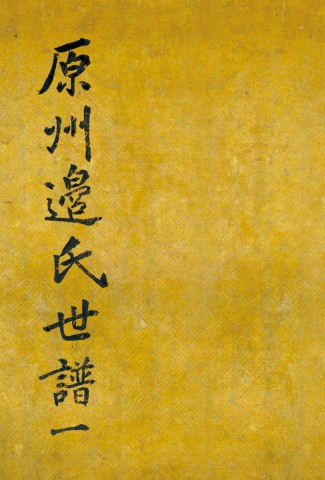 原州邊氏世譜一